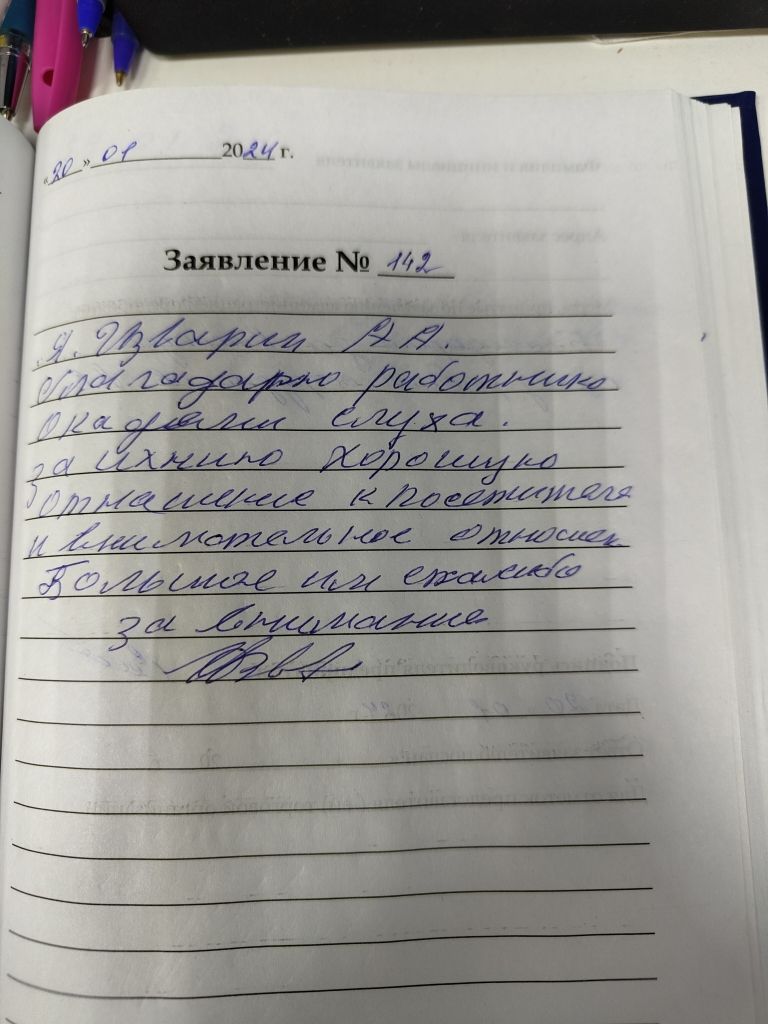 «20» 01 2024 г.
Заявление № 142
Я. Изварин А А.
благадарю работнико
окадемии слуха.
за ихнию хорошую
отнашение к посетителя
и внимательное относиен
Большое им спасибо
за внимание